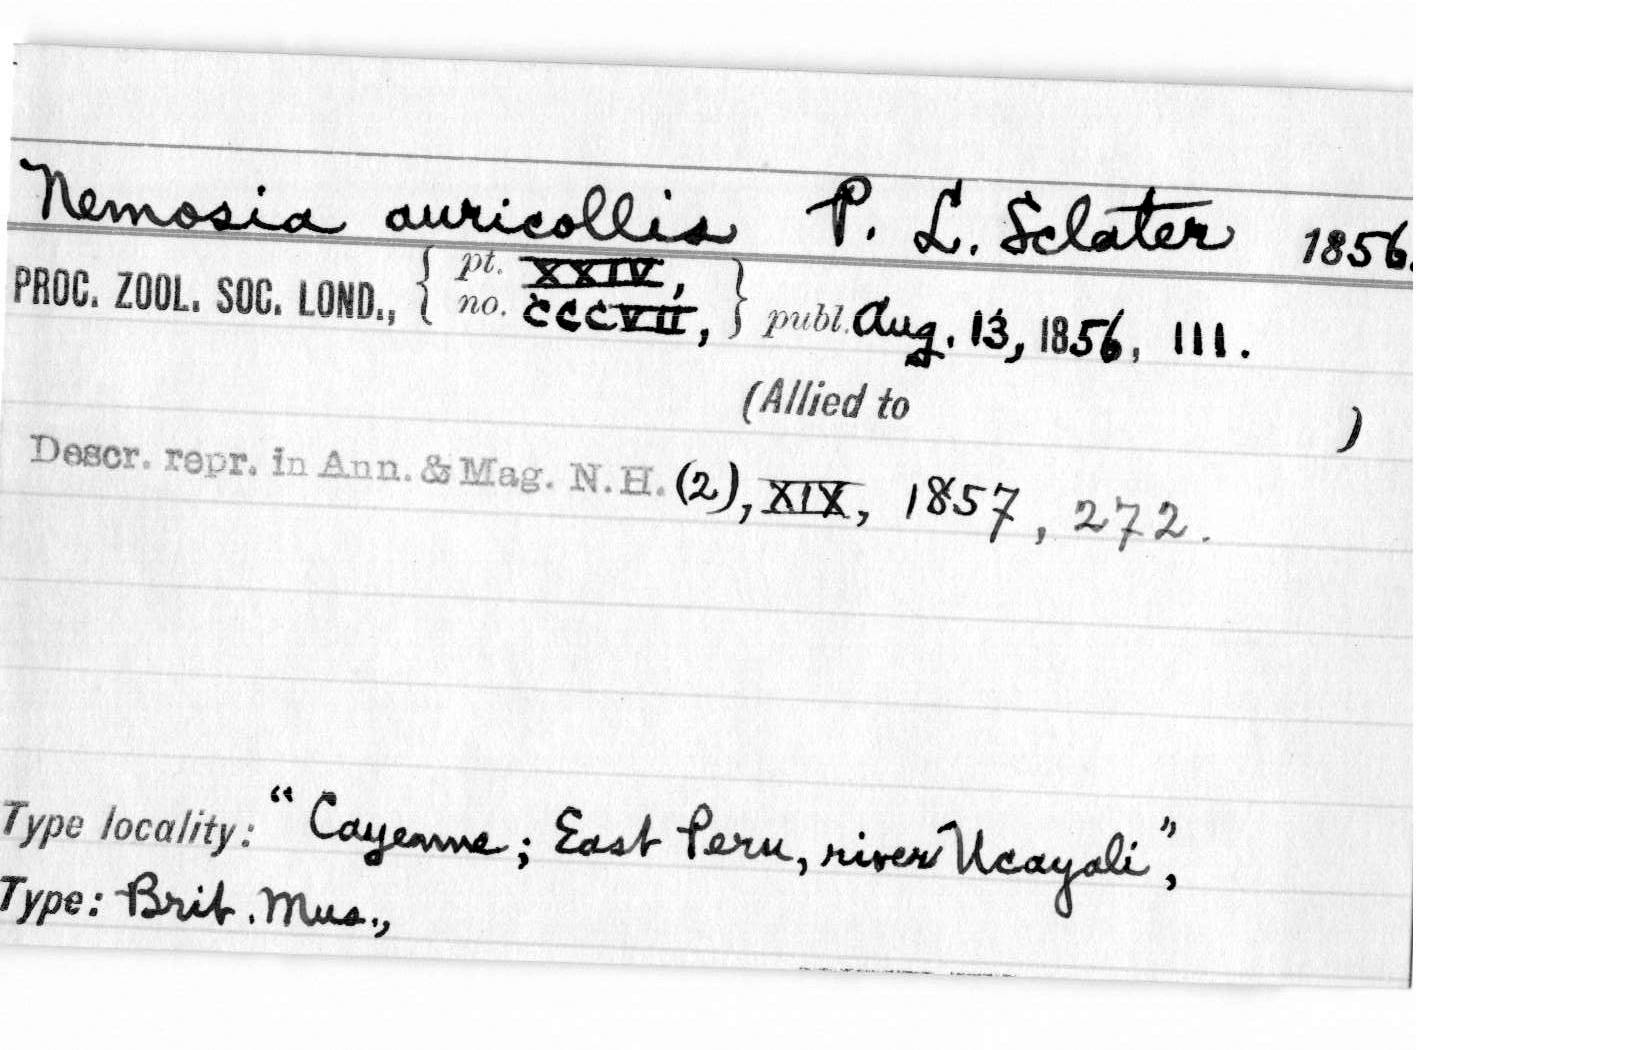 Nemosia auricollis P. L. Sclater 1856.
PROC. ZOOL. SOC. LOND., { pt. XXIV, no. CCCVII, } publ. Aug. 13, 1856, 111.
(Allied to )
Descr. repr. in Ann. & Mag. N.H. (2), XIX, 1857, 272.
Type locality: "Cayenne; East Peru, river Ucayali",
Type: Brit. Mus.,